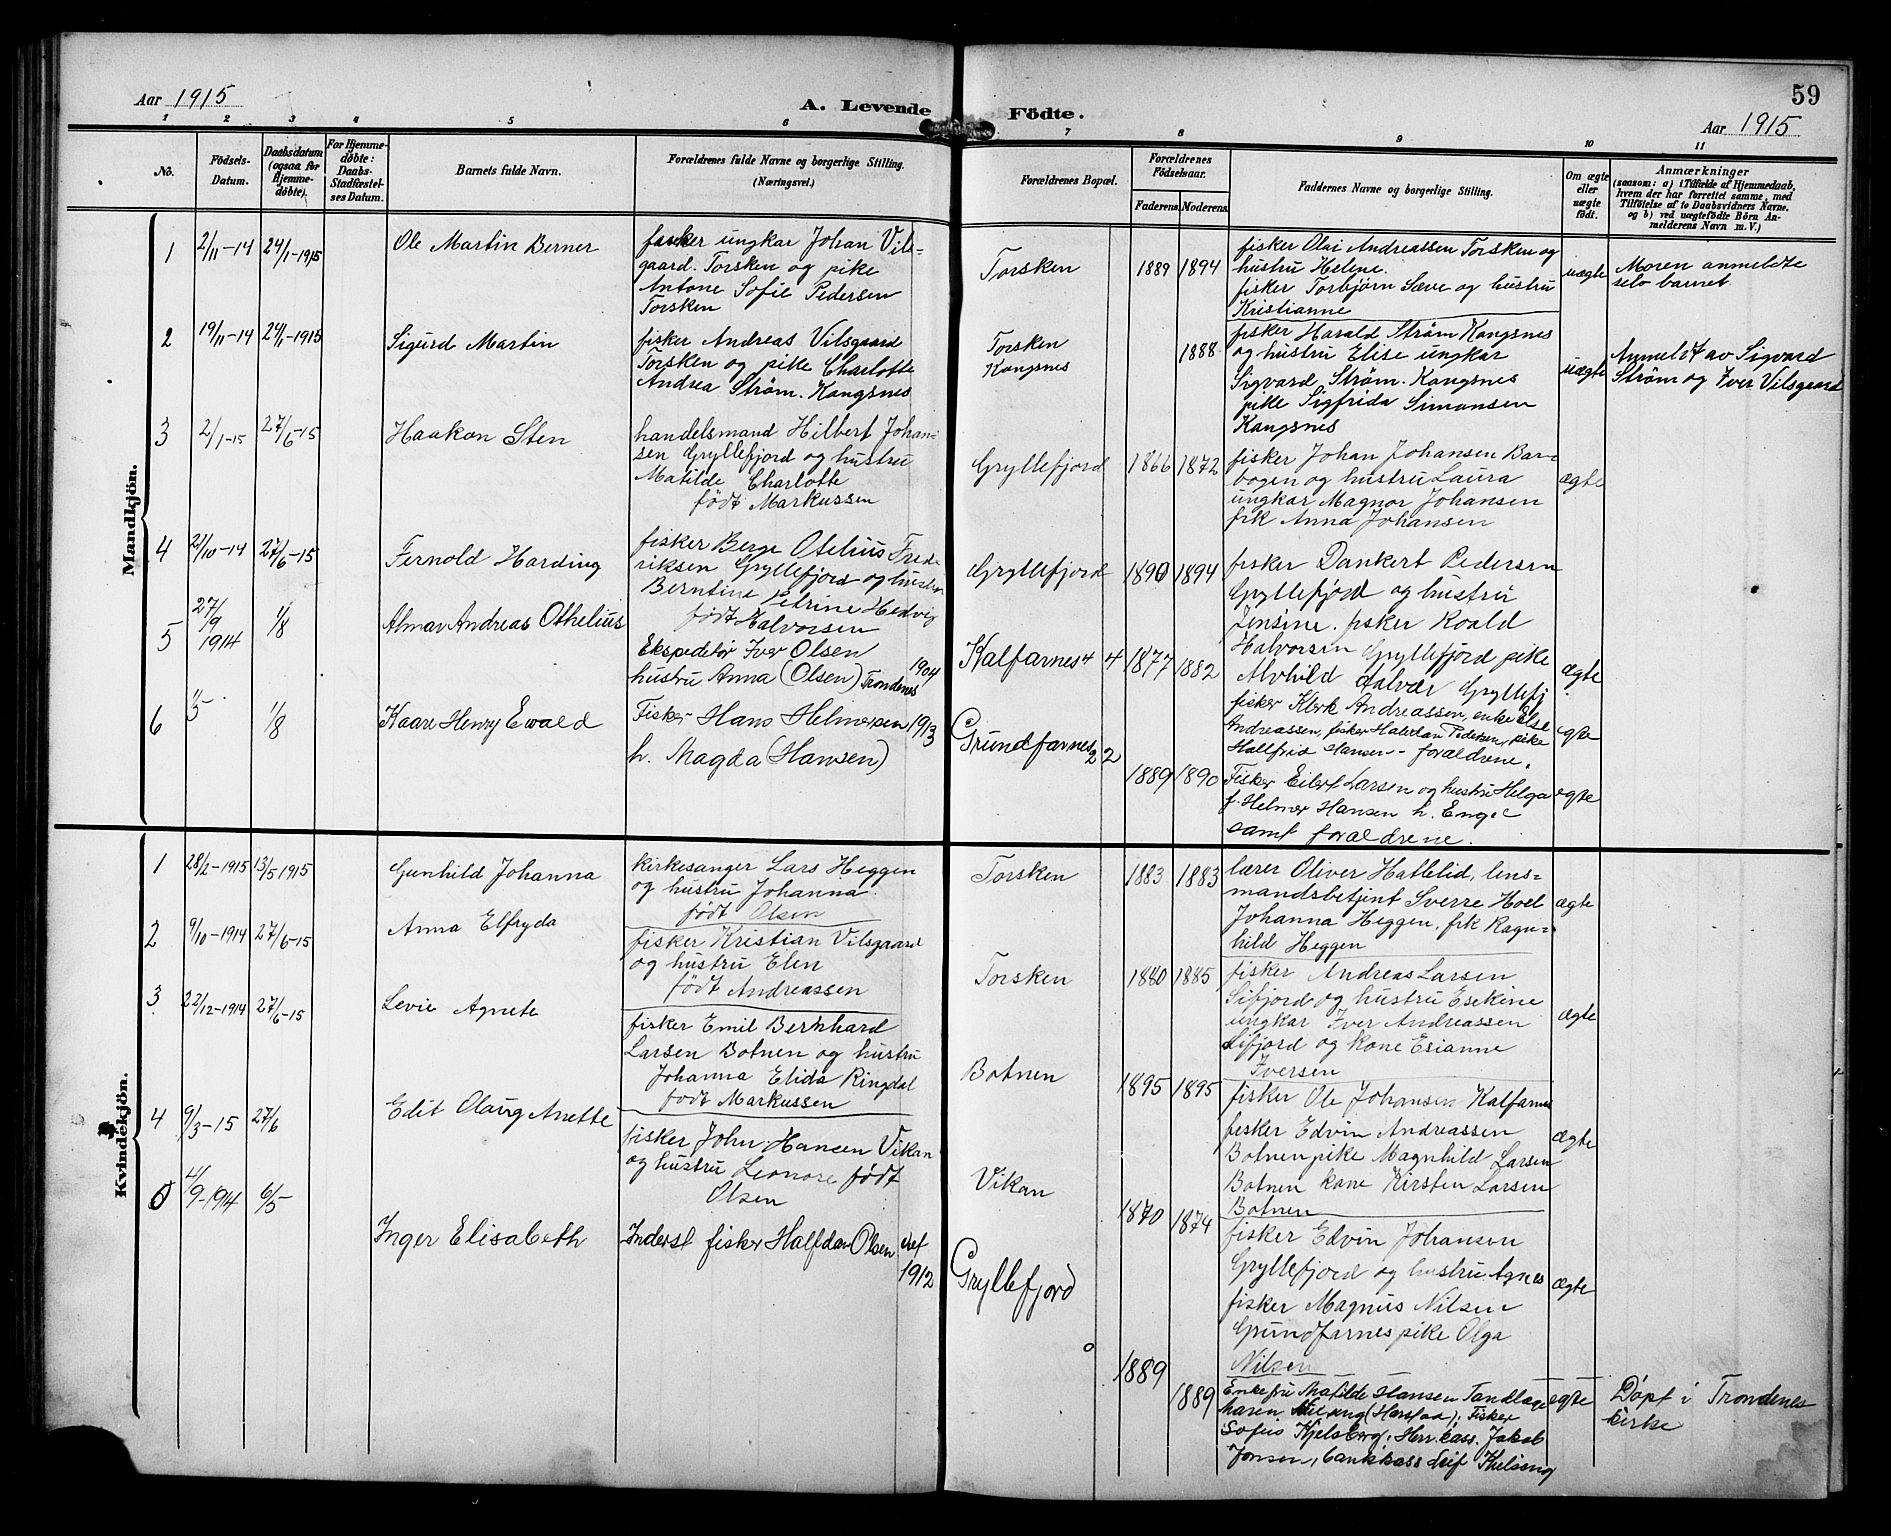 Aar 1915
A. Levende Födte.
59
Aar 1915
1 2 3 4 5 6 7 8 9 10 11
No.
Födsels-
Datum.
Daabsdatum
(ogsaa for
Hjemme-
döbte).
For Hjemme-
döbte:
Daabs-
Stadfæstel-
ses Datum.
Barnets fulde Navn.
Forældrenes fulde Navne og borgerlige Stilling.
(Næringsvei.)
Forældrenes Bopæl.
Forældrenes
Födselsaar.
Faderens Moderens.
Faddernes Navne og borgerlige Stilling.
Om ægte
eller
uægte
födt.
Anmærkninger
(saasom: a) i Tilfælde af Hjemmedaab,
hvem der har forrettet samme, med
Tilföielse af to Daabsvidners Navne,
og b) ved uægtefödte Börn An-
melderens Navn m. V.)
Mandkjön.
1
2/11-14
24/1-1915
Ole Martin Berner
fisker ungkar Johan Vils-
gaard. Torsken og pike
Antone Sofie Pedersen
Torsken
Torsken
1889 1894
fisker Olai Andreassen Torsken og
hustru Helene.
fisker Torbjørn Sæve og hustru
Kristianne
uægte
Moren anmeldte
selv barnet.
2
19/11-14
24/1-1915
Sigurd Martin
fisker Andreas Vilsgaard
Torsken og pike Charlotte
Andrea Strøm. Kongsnes
Torsken
Kongsnes
1888
fisker Harald Strøm Kongsnes
og hustru Elise ungkar
Sigvard Strøm. Kongsnes
pike Sigfrida Simonsen
Kongsnes
uægte
Anmeldt av Sigvard
Strøm og Iver Vilsgaard
3
2/1-15
27/6-15
Haakon Sten
handelsmand Hilbert Johan-
sen Gryllefjord og hustru
Matilde Charlotte
født Markussen
Gryllefjord
1866 1872
fisker Johan Johansen Bar-
bogen og hustru Laura
ungkar Magnor Johansen
frk Anna Johansen
ægte
4
21/10-14
27/6-15
Fernold Harding
fisker Berge Otelius Fred-
riksen Gryllefjord og hustru
Berntine Petrine Hedvig
født Halvorsen
Gryllefjord
1890 1894
fisker Dankert Pedersen
Gryllefjord og hustru
Jensine. fisker Roald
Halvorsen Gryllefjord pike
Alvhild Aalvær Gryllefj
ægte
5
27/9
1914
1/8
Almar Andreas Othelius
Ekspeditør Iver Olsen
hustru Anna (Olsen) Trondenes
1904
Kalfarnes 4 4
1877 1882
fisker Klerk Andreassen, enke Else
Andreassen, fisker Halvdan Pedersen, pike
Hallfrid Hansen - forældrene.
egte
6
1/5
1/8
Kaare Henry Ewald
Fisker Hans Helmersen
h. Magda (Hansen)
1913
Grundfarnes 2 2
1889 1890
Fisker Eilert Larsen og hustru Helga
f. Helmer Hansen h. Engel
samt forældrene.
egte
Kvindekjön.
1
28/2-1915
13/5 1915
Gunhild Johanna
kirkesanger Lars Heggen
og hustru Johanna
født Olsen
Torsken
1883 1883
lærer Oliver Hallelid, lens-
mandsbetjent Sverre Hoel
Johanna Heggen, frk Ragn-
hild Heggen
ægte
2
9/10-1914
27/6-15
Anna Elfryda
fisker Kristian Vilsgaard
og hustru Elen
født Andreassen
Torsken
1880 1885
fisker Andreas Larsen
Sifjord og hustru Esekine
ungkar Iver Andreassen
Sifjord og kone Esianne
Iversen
ægte
3
22/12-1914
27/6-15
Levie Agnete
fisker Emil Bernhard
Larsen Botnen og hustru
Johanna Elida Ringdal
født Markussen
Botnen
1895 1895
fisker Ole Johansen Kalfarnes
fisker Edvin Andreassen
Botnen pike Magnhild Larsen
Botnen kone Kirsten Larsen
Botnen
ægte
4
9/3-15
27/6
Edit Olaug Anette
fisker John Hansen Vikan
og hustru Leonore født
Olsen
Vikan
1870 1874
fisker Edvin Johansen
Gryllefjord og hustru Agnes
fisker Magnus Nilsen
Grundfarnes pike Olga
Nilsen
ægte
5
4/9-1914
6/5
Inger Elisabeth
Inderst fisker Halfdan Olsen
1912
Gryllefjord
0
1889 1889
Enkefru Matilde Hansen Tandlæge
(Harstad); Fisker
Sofus Kjelsberg, Herr kass. Jakob
Jonsen, bankkass Leif
egte
Døpt i Trondenes
kirke